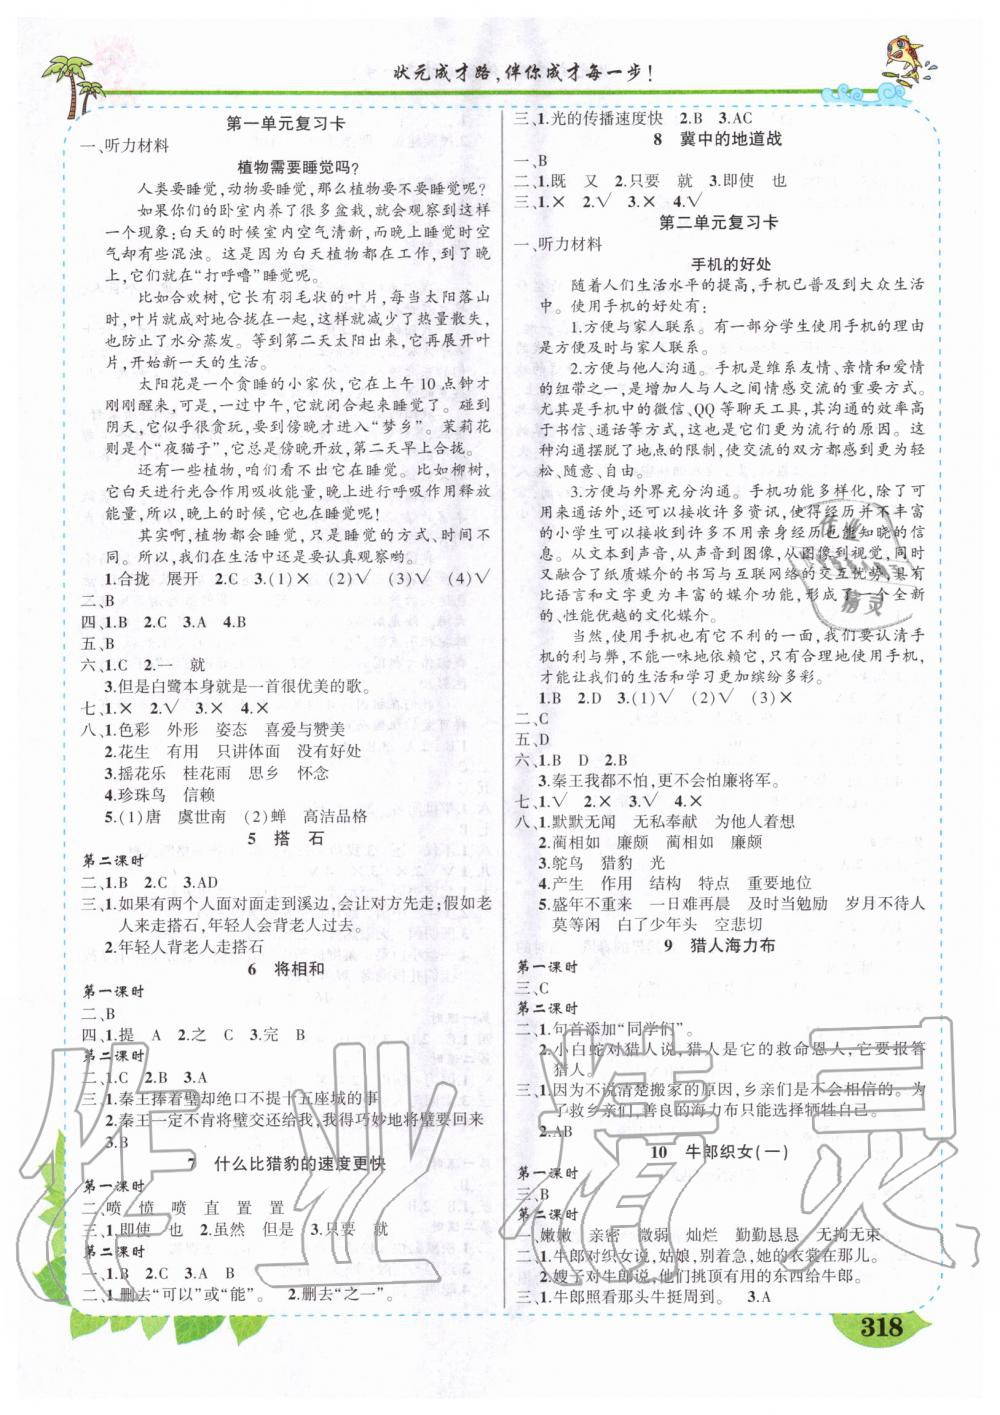 状元成才路,伴你成才每一步!
第一单元复习卡
一、听力材料
植物需要睡觉吗?
人类要睡觉,动物要睡觉,那么植物要不要睡觉呢?
如果你们的卧室内养了很多盆栽,就会观察到这样
一个现象:白天的时候室内空气清新,而晚上睡觉时空
气却有些混浊。这是因为白天植物都在工作,到了晚
上,它们就在“打呼噜”睡觉呢。
比如合欢树,它长有羽毛状的叶片,每当太阳落山
时,叶片成对地合拢在一起,这样就减少了热量散失,
也防止了水分蒸发。等到第二天太阳出来,它再展开叶
片,开始新一天的生活。
太阳花是一个贪睡的小家伙,它在上午10点钟才
刚刚醒来,可是,一过中午,它就闭合起来睡觉了。碰到
阴天,它似乎很贪玩,要到傍晚才进入“梦乡”。茉莉花
则是个“夜猫子”,它总是傍晚开放,第二天早上合拢。
还有一些植物,咱们看不出它在睡觉。比如柳树,
它白天进行光合作用吸收能量,晚上进行呼吸作用释放
能量,所以,晚上的时候,它也在睡觉呢!
其实啊,植物都会睡觉,只是睡觉的方式、时间不
同。所以,我们在生活中还是要认真观察哟。
1.合拢 展开 2.C 3.(1)× (2)√ (3)√ (4)√
二、B
四、1.B 2.C 3.A 4.B
五、B
六、1.C 2.一 就
3.但是白鹭本身就是一首很优美的歌。
七、1.× 2.√ 3.× 4.×
八、1.色彩 外形 姿态 喜爱与赞美
2.花生 有用 只讲体面 没有好处
3.摇花乐 桂花雨 思乡 怀念
4.珍珠鸟 信赖
5.(1)唐 虞世南 (2)蝉 高洁品格
5 搭 石
第二课时
二、1.B 2.C 3.AD
三、1.如果有两个人面对面走到溪边,会让对方先走;假如老
人来走搭石,年轻人会背老人过去。
2.年轻人背老人走搭石
6 将相和
第一课时
二、B
四、1.提 A 2.之 C 3.完 B
第二课时
二、1.C 2.B 3.A
三、1.秦王捧着璧却绝口不提十五座城的事
2.秦王一定不肯将璧交还给我,我得巧妙地将璧要回来
3.B
7 什么比猎豹的速度更快
第一课时
二、喷 愤 喷 直 置 置
三、1.即使 也 2.虽然 但是 3.只要 就
第二课时
一、1.B 2.C 3.A B
二、1.删去“可以”或“能”。 2.删去“之一”。
三、1.光的传播速度快 2.B 3.AC
8 冀中的地道战
一、B
二、1.既 又 2.只要 就 3.即使 也
三、1.× 2.√ 3.× 4.√
第二单元复习卡
一、听力材料
手机的好处
随着人们生活水平的提高,手机已普及到大众生活
中。使用手机的好处有:
1.方便与家人联系。有一部分学生使用手机的理由
是方便及时与家人联系。
2.方便与他人沟通。手机是维系友情、亲情和爱情
的纽带之一,是增加人与人之间情感交流的重要方式。
尤其是手机中的微信、QQ等聊天工具,其沟通的效率高
于书信、通话等方式,这也是它们更为流行的原因。这
种沟通摆脱了地点的限制,使交流的双方都感到更为轻
松、随意、自由。
3.方便与外界充分沟通。手机功能多样化,除了可
用来通话外,还可以接收许多资讯,使得经历并不丰富
的小学生可以接收到许多不用亲身经历也能知晓的信
息。从文本到声音,从声音到图像,从图像到视觉,同时
又融合了纸质媒介的书写与互联网络的交互优势,具有
比语言和文字更为丰富的媒介功能,形成了一个全新
的、性能优越的文化媒介。
当然,使用手机也有它不利的一面,我们要认清手
机的利与弊,不能一味地依赖它,只有合理地使用手机,
才能让我们的生活和学习更加缤纷多彩。
1.B 2.D 3.(1)× (2)√ (3)×
二、C
五、D
六、1.B 2.B
3.秦王我都不怕,更不会怕廉将军。
七、1.√ 2.× 3.√ 4.×
八、1.默默无闻 无私奉献 为他人着想
2.蔺相如 廉颇 蔺相如 廉颇
3.鸵鸟 猎豹 光
4.产生 作用 结构 特点 重要地位
5.盛年不重来 一日难再晨 及时当勉励 岁月不待人
莫等闲 白了少年头 空悲切
9 猎人海力布
第一课时
三、C
第二课时
二、1.句首添加“同学们”。
2.小白蛇对猎人说,猎人是它的救命恩人,它要报答
猎人。
三、1.因为不说清楚搬家的原因,乡亲们是不会相信的;为
了救乡亲们,善良的海力布只能选择牺牲自己。
2.AB
10 牛郎织女(一)
第一课时
三、B
第二课时
一、嫩嫩 亲密 微弱 灿烂 勤勤恳恳 无拘无束
二、1.牛郎对织女说,姑娘,别着急,她的衣裳在那儿。
2.嫂子对牛郎说,他们挑顶有用的东西给牛郎。
三、1.牛郎照看那头牛挺周到。 3.A
318
作业精灵
作业
精灵